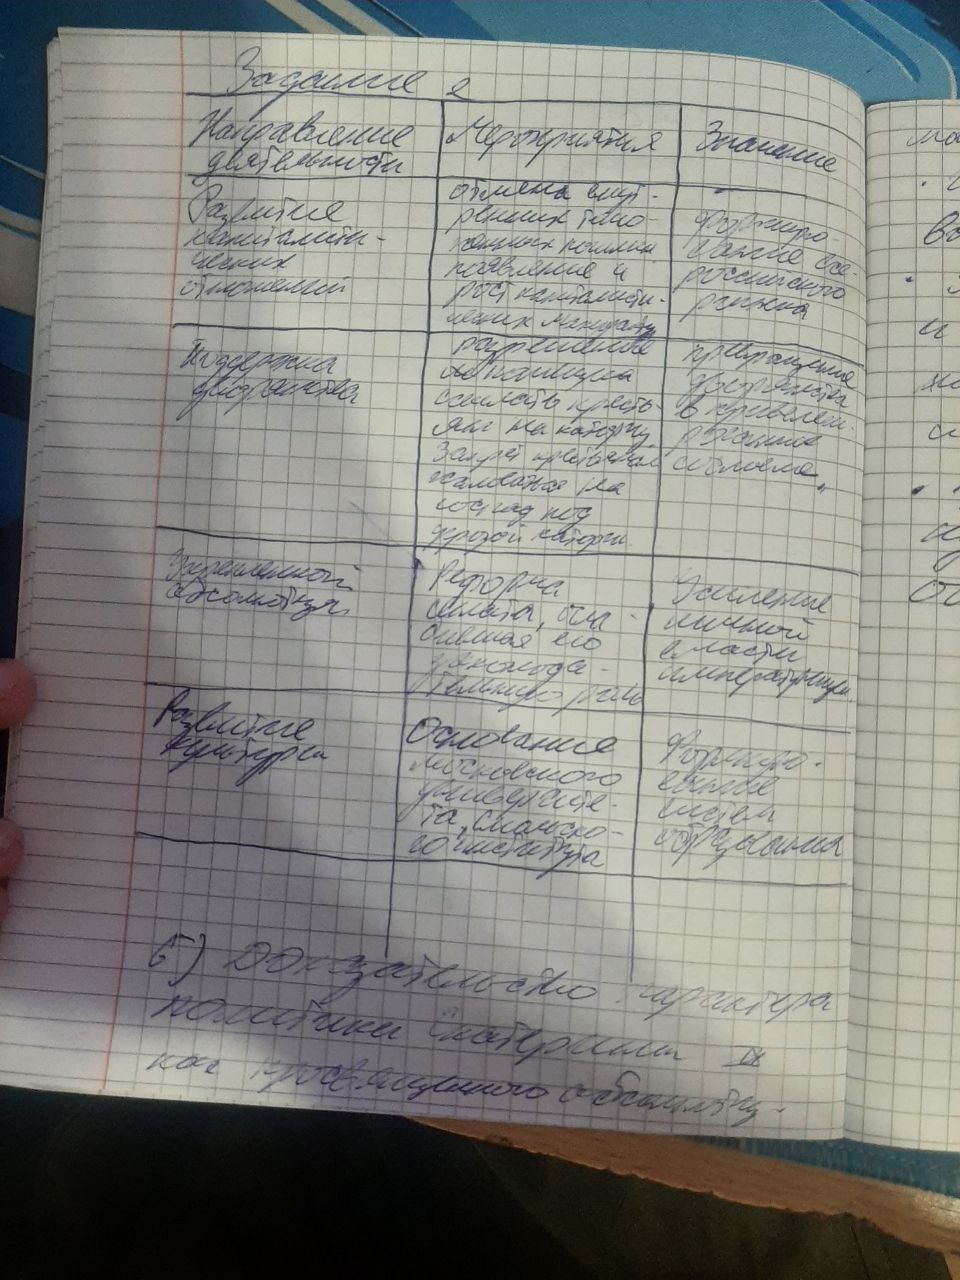 Задание 2
Направление
деятельности
Мероприятия
Значение
Развитие
капиталисти-
ческих
отношений
отмена внут-
ренних тамо-
женных пошлин
появление и
рост капиталисти-
ческих мануфактур
Формиро-
вание все-
российского
рынка
Поддержка
дворянства
разрешение
помещикам
ссылать кресть-
ян на каторгу.
Запрет крестьянам
жаловаться на
господ под
угрозой каторги.
превращение
дворянства
в привелеги-
рованное
сословие.
Укрепление
абсолютизма
Реформа
сената, огра-
ничившая его
законода-
тельную роль
Усиление
личной
власти
императрицы.
Развитие
культуры
Основание
московского
университе-
та, смольно-
го института
Формиро-
вание
систем
образования
Б) Доказательство характера
политики Екатерины II
как просвященного абсолютиз-